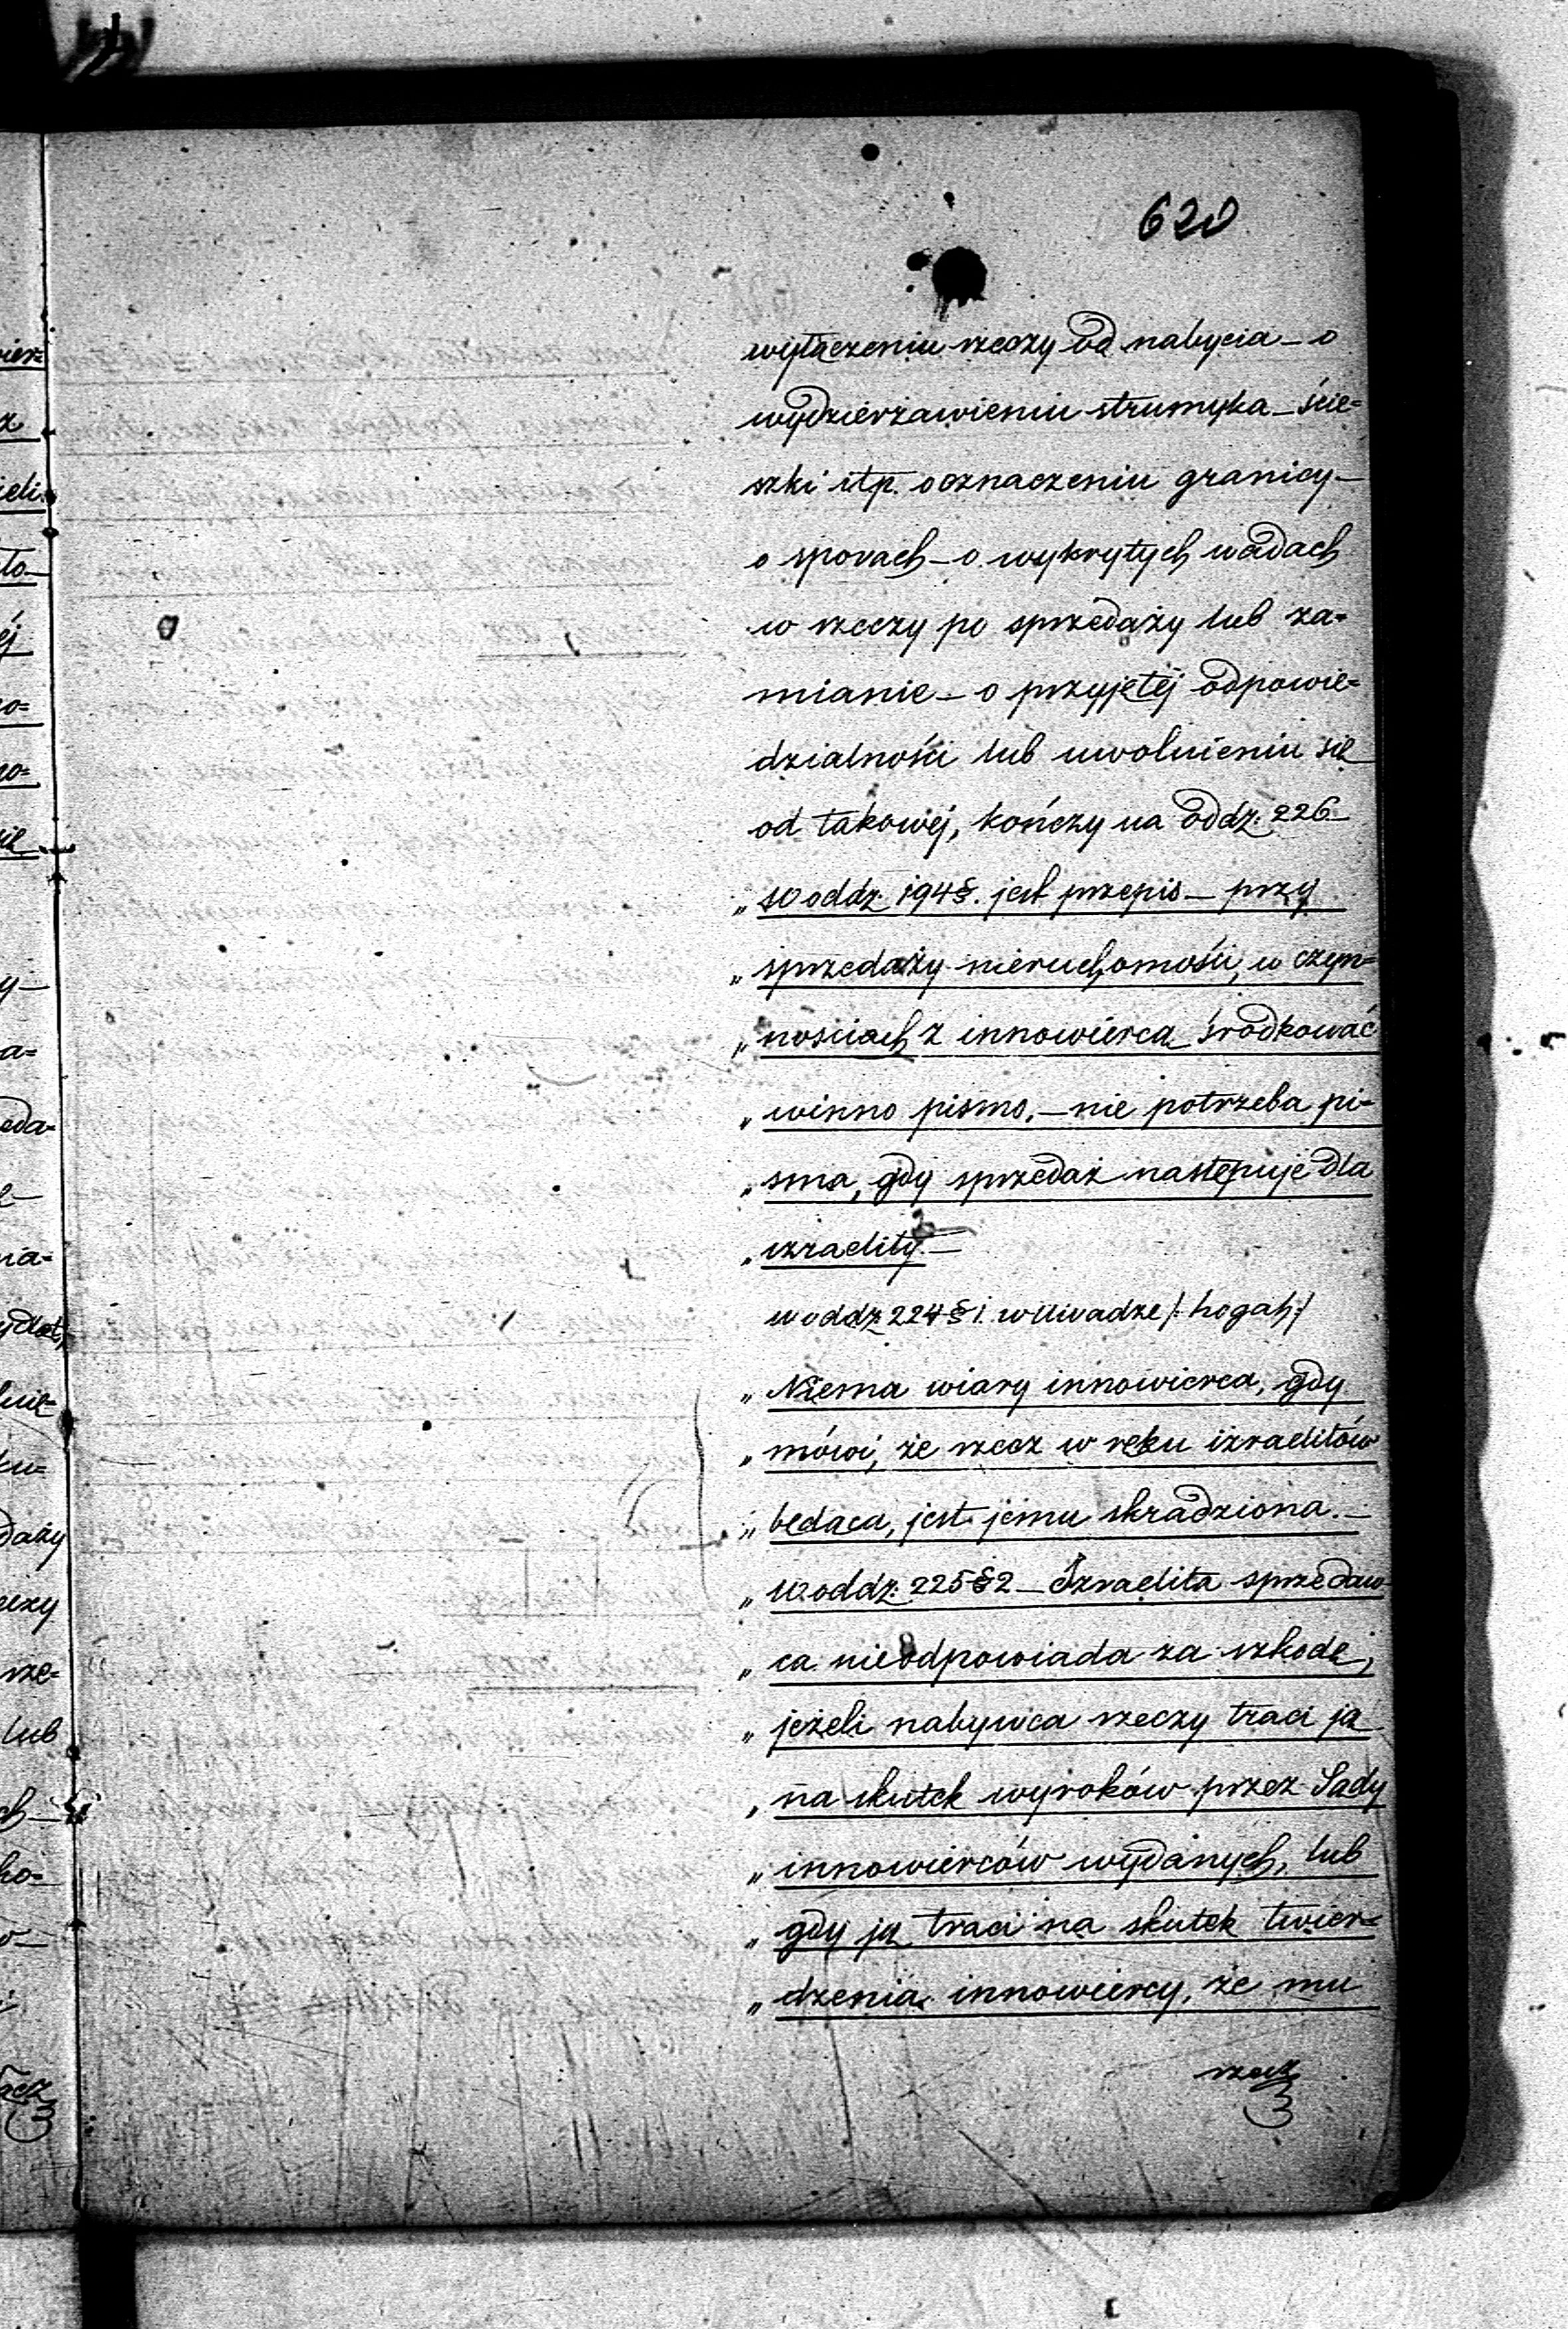 620
wyłączeniu rzeczy od nabycia – o
wydzierżawieniu strumyka – ście=
szki itp. o oznaczeniu granicy –
o sporach – o wykrytych wadach
w rzeczy po sprzedaży lub za=
mianie – o przyjętéj odpowie=
dzialności lub uwolnieniu się
od takowéj, kończy na oddz: 226 –
„ W oddz: 194 §. jest przepis – przy
„ sprzedaży nieruchomości, w czyn=
„ nosciach z innowiercą środkować
„ winno pismo, – nie potrzeba pi=
„ sma, gdy sprzedaż następuje dla
„ izraelity –
w oddz: 224 § 1. w Uwadze /: hogah :/
„ Niema wiary innowierca, gdy
„ mówi, że rzecz w ręku izraelitów
„ będąca, jest jemu skradziona. –
„ W oddz: 225 § 2 – Izraelita sprzedaw
„ ca nieodpowiada za szkodę,
„ jeżeli nabywca rzeczy traci ją
„ na skutek wyroków przez Sądy
„ innowierców wydanych, lub
„ gdy ją traci na skutek twier=
„ dzenia innowiercy, że mu
rzecz